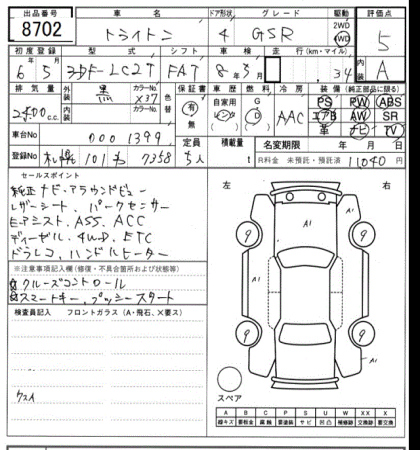 出品番号 車名 ドア形状 グレード 駆動 評価点
8702 トライトン 4 GSR 2WD 4WD 5
初度登録 型式 シフト 車検 走行(km・マイル) 内装
6年5月 3DF-LC2T FAT 8年5月 34 A
排気量 外装 黒 カラーNo. X37 色替 保証書 車歴 燃料 冷房 装備 (純正部品に限る)
2400cc 内装 カラーNo. 有 無 自家用 レンタ G D AAC PS PW ABS
エアB AW SR
革 ナビ TV
車台No 0001399 定員 5人 積載量 t 名変期限 年 月 日
登録No 札幌 101 7358 R料金 未預託・預託済 11040円
セールスポイント
純正ナビ・アラウンドビュー
レザーシート、パークセンサー
E-アシスト、ASS、ACC
ディーゼル、4WD、ETC
ドラレコ、ハンドルヒーター
※注意事項記入欄(修復・不具合箇所および状態等)
☆クルーズコントロール
☆スマートキー、プッシュスタート
検査員記入 フロントガラス(A・飛石、X要ス)
ウスA
左 右
A1
9 9
A1
A1
9 9
A1
スペア
A B C P S U W X XX
線キズ 要板金 腐蝕 要塗装 サビ 凹凸 補修跡 交換跡 要交換